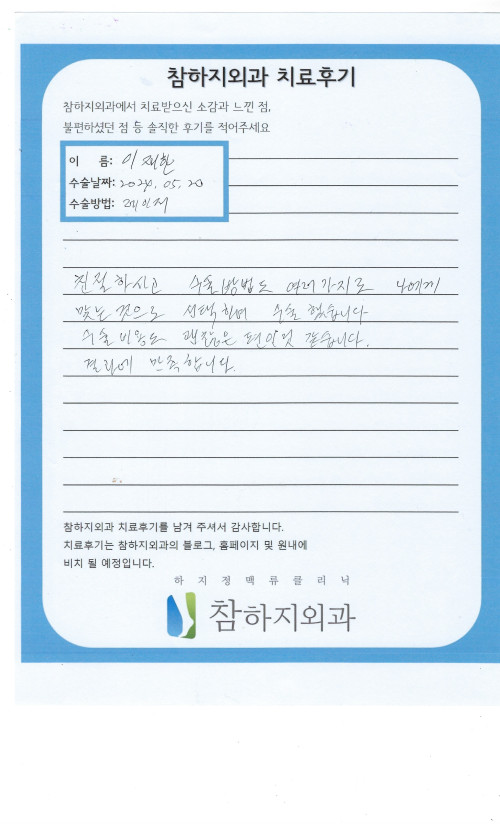 참하지외과 치료후기
참하지외과에서 치료받으신 소감과 느낀 점,
불편하셨던 점 등 솔직한 후기를 적어주세요
이 름: 이재환
수술날짜: 2024. 05. 20
수술방법: 레이저
친절하시고 수술방법도 여러가지로 나에게
맞는 것으로 선택하여 수술 했습니다
수술비용도 괜찮은 편인것 같습니다.
결과에 만족합니다.
참하지외과 치료후기를 남겨 주셔서 감사합니다.
치료후기는 참하지외과의 블로그, 홈페이지 및 원내에
비치 될 예정입니다.
하지정맥류클리닉
참하지외과